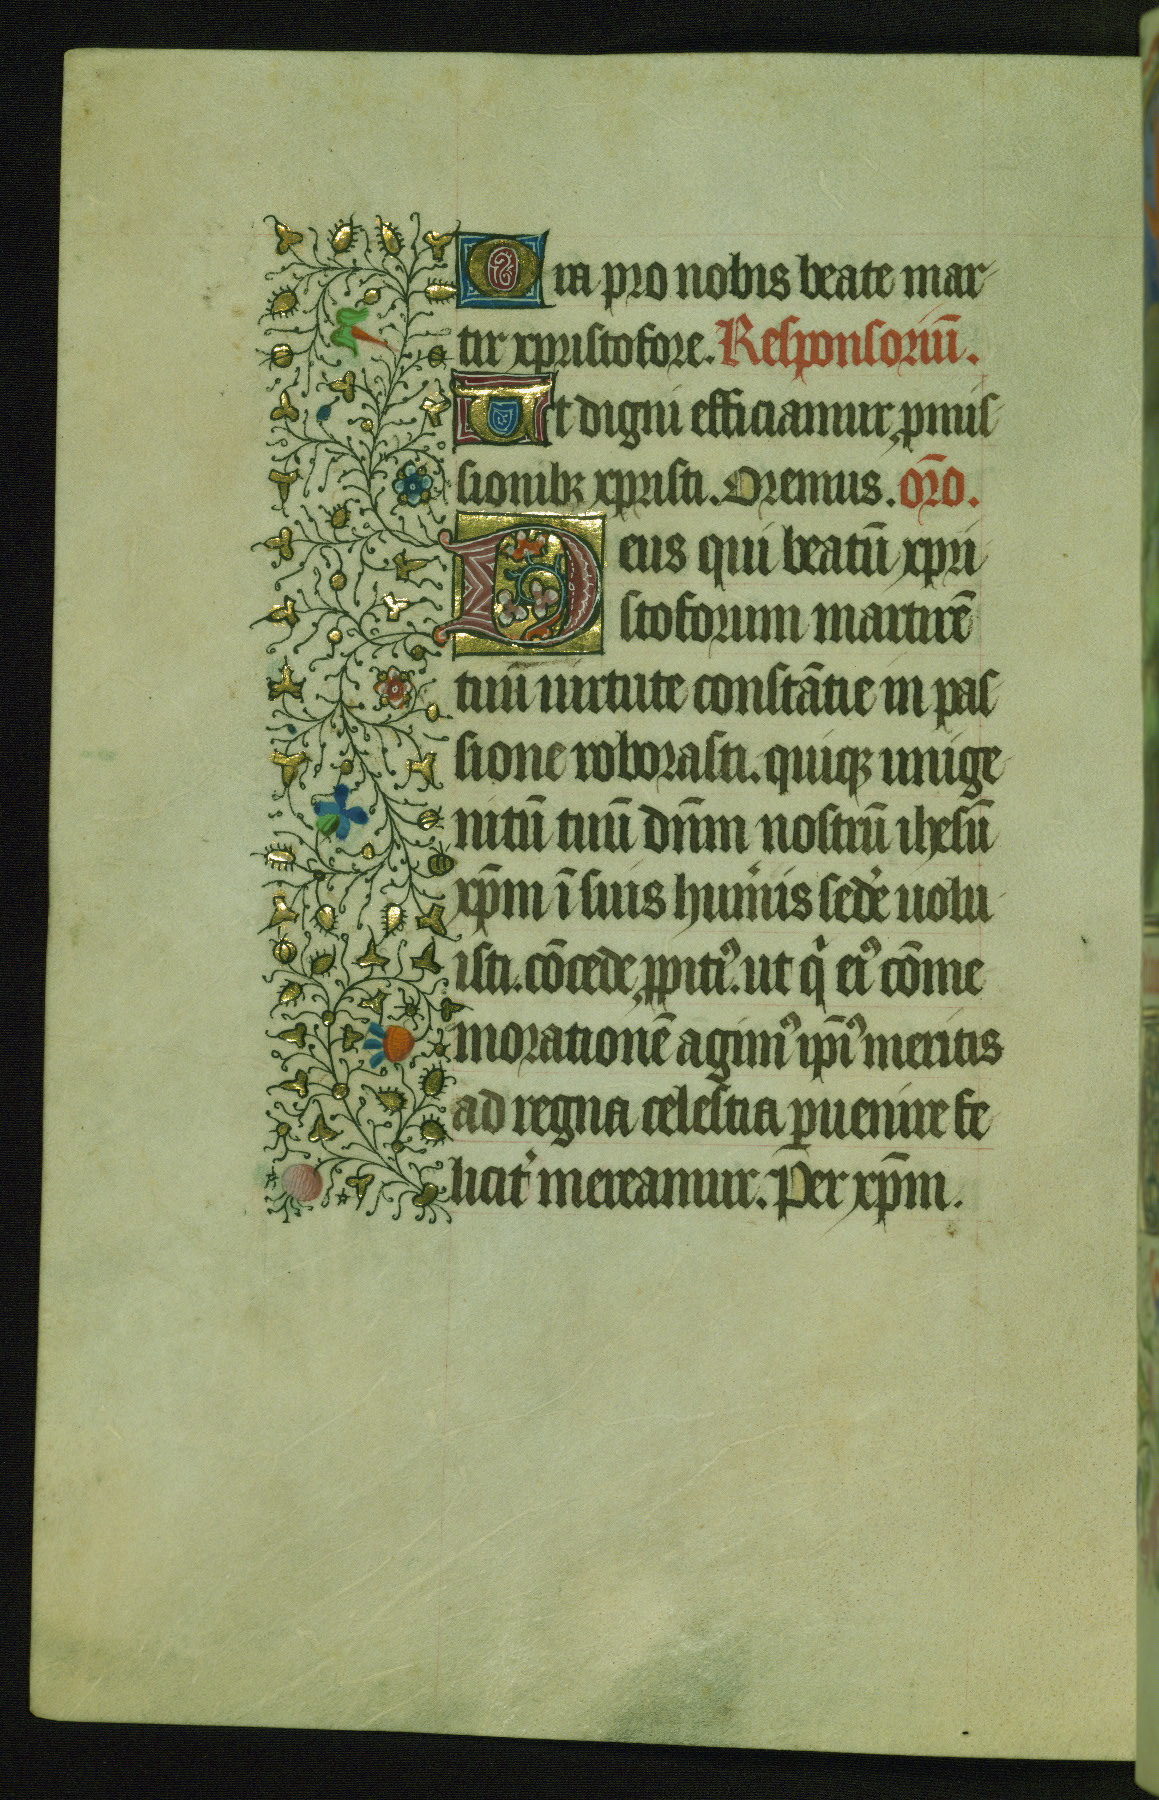 Ora pro nobis beate mar
tir xpristofore. Responsoriū.
Ut digni efficiamur, pmis
sionibꝫ xpristi. Oremus. or̄o.
Deus qui beatū xpri
stoforum martirē
tuū uirtute constātie in pas
sione roborasti. quiqꝫ unige
nitū tuū dn̄m nostrū ihesū
xp̄m ī suis humĩs sedẽ uolu
isti. cōcede, ꝓpitiꝰ. ut q̇ eiꝰ cōme
morationē agimꝰ ip̄iꝰ meritis
ad regna celestia ꝑuenire fe
licit᾽ mereamur. Per xp̄m.